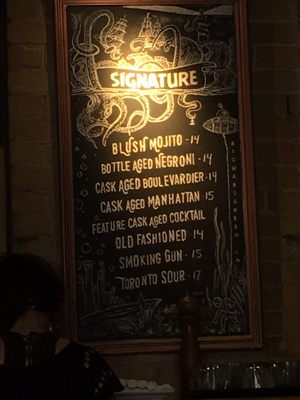 SIGNATURE
BLUSH MOJITO - 14
BOTTLE AGED NEGRONI - 14
CASK AGED BOULEVARDIER - 14
CASK AGED MANHATTAN 15
FEATURE CASK AGED COCKTAIL
OLD FASHIONED 14
SMOKING GUN - 15
TORONTO SOUR - 17